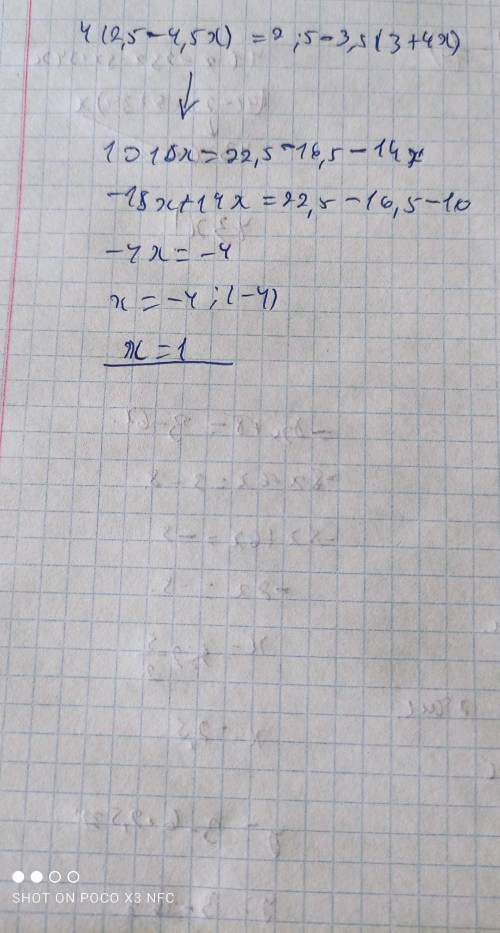 4(2,5-4,5x) = 2;5-3,5(3+4x)
1018x=22,5-16,5-14x
-18x+14x=22,5-16,5-10
-4x=-4
x=-4;(-4)
x=1
SHOT ON POCO X3 NFC